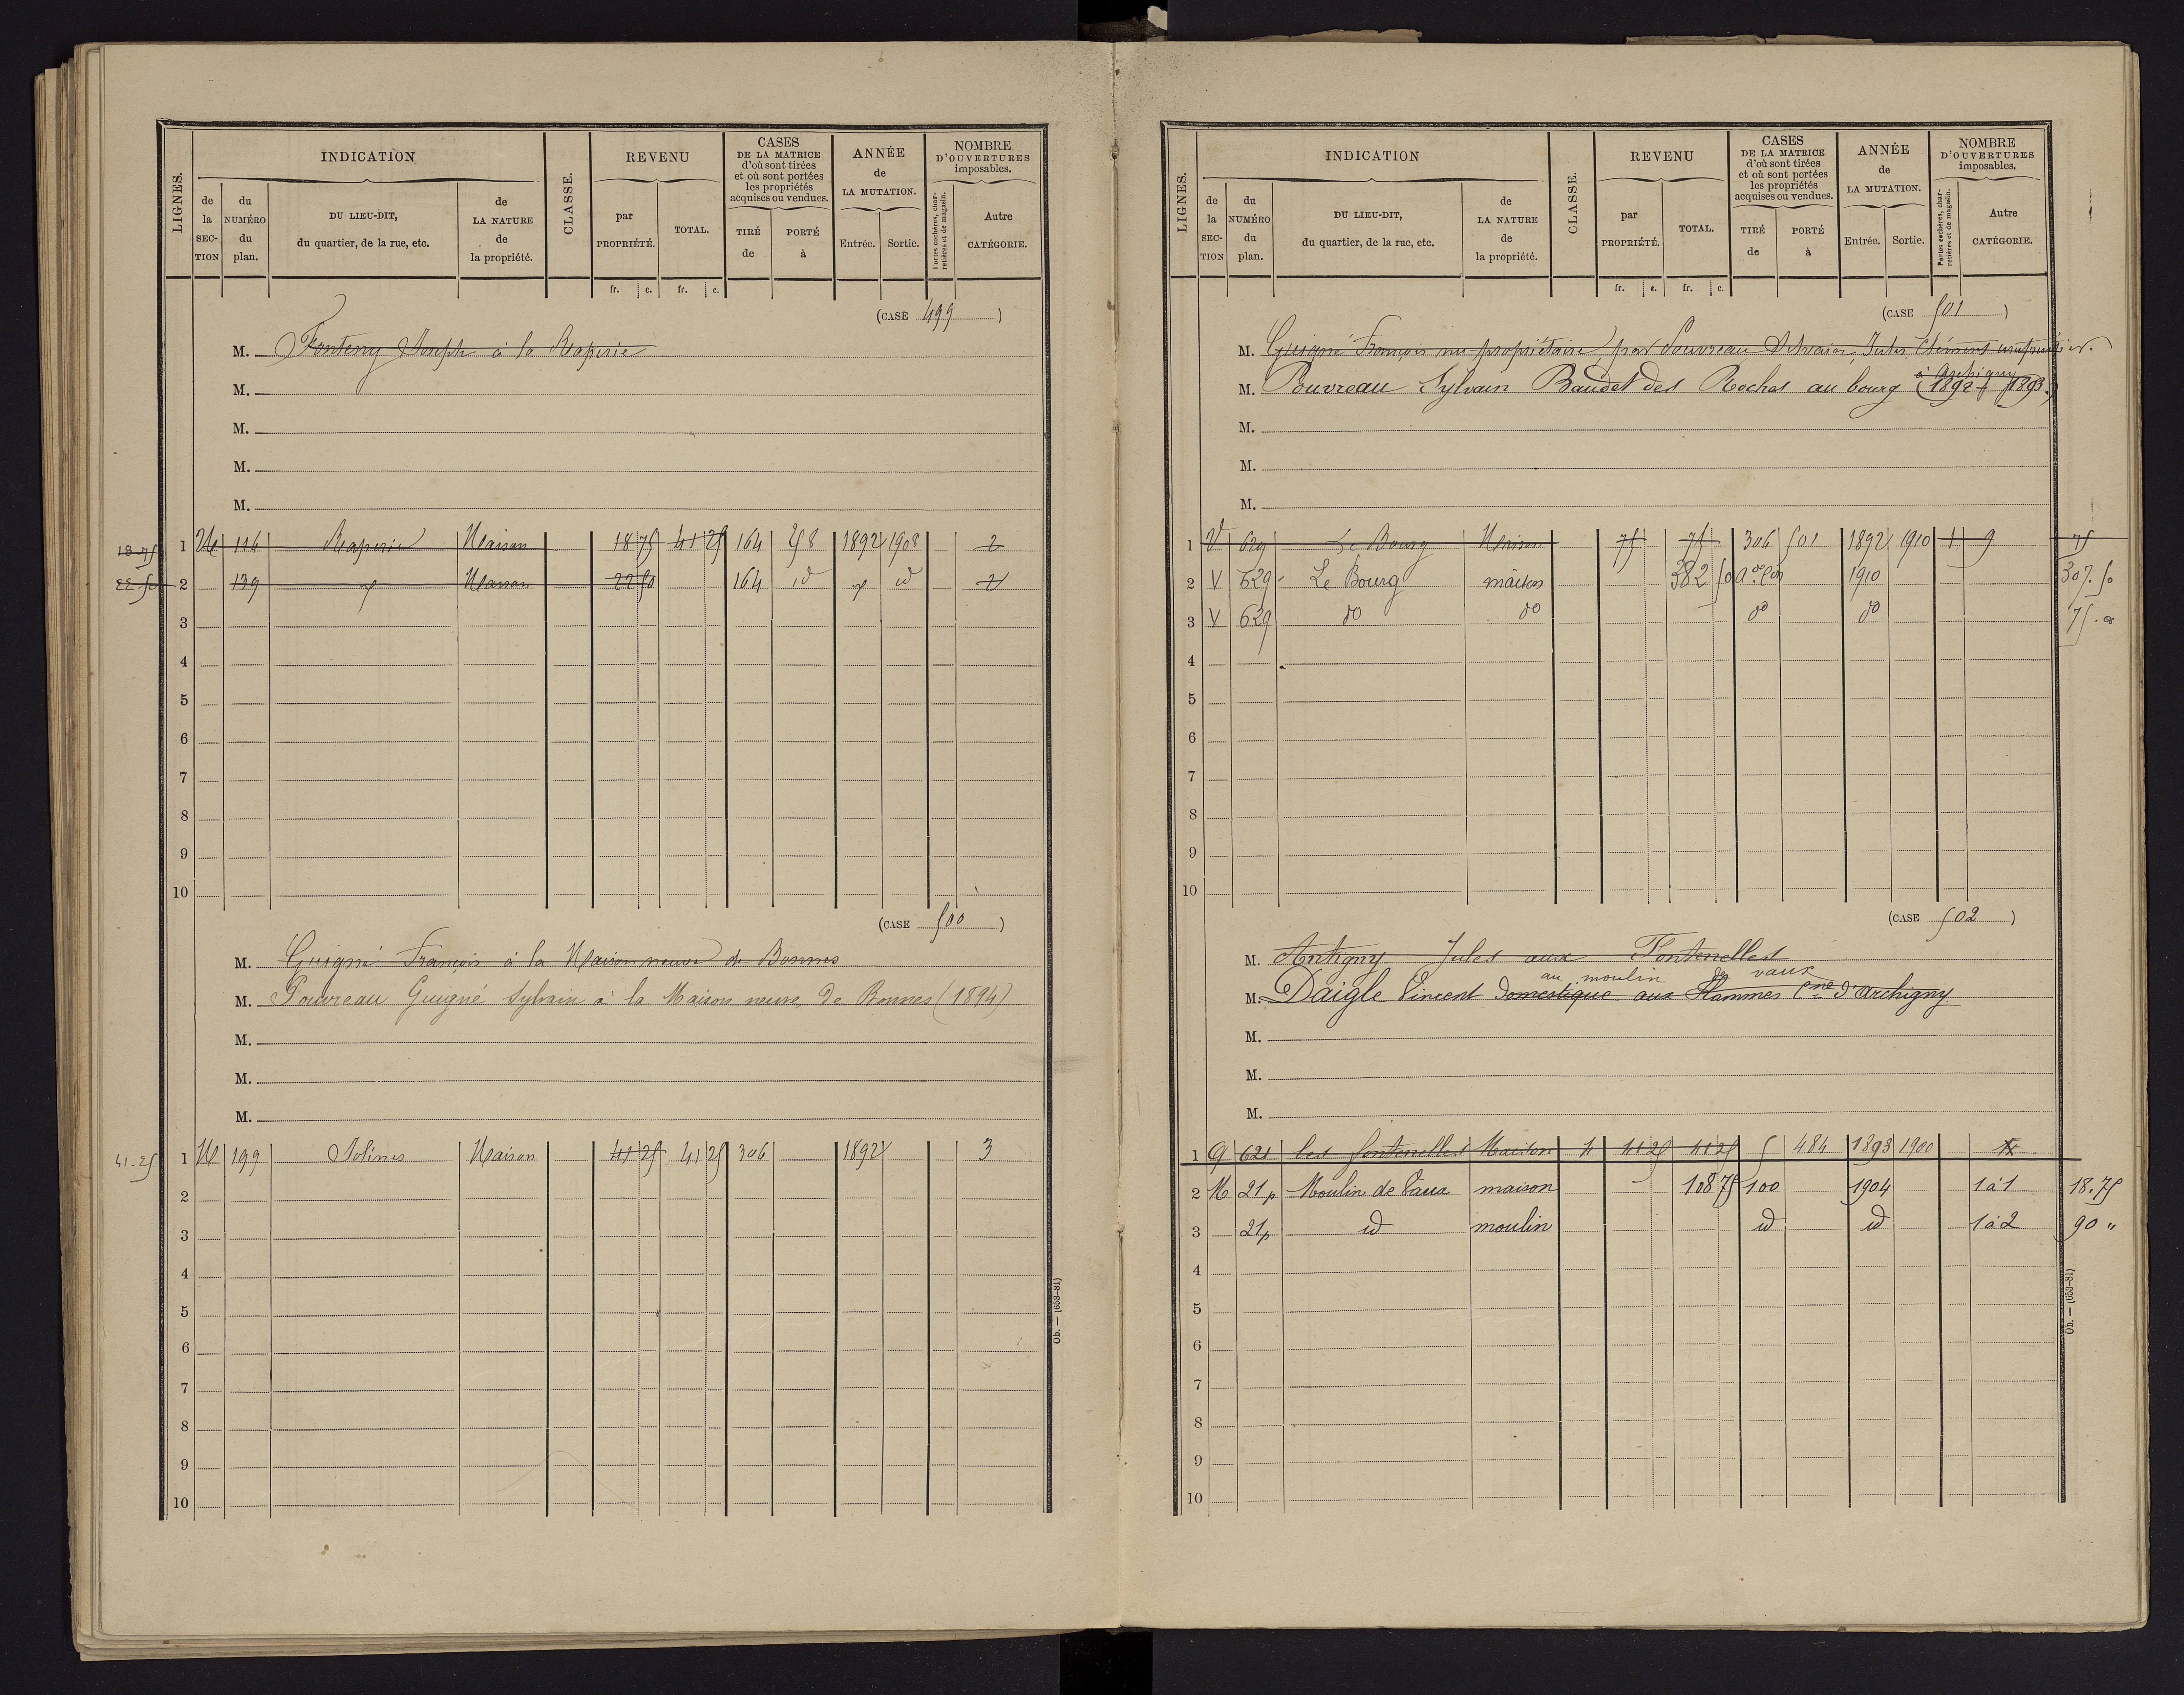 LIGNES. INDICATION CLASSE. REVENU CASES DE LA MATRICE d'où sont tirées et où sont portées les propriétés acquises ou vendues. ANNÉE de LA MUTATION. NOMBRE D'OUVERTURES imposables.
de la SECTION du NUMÉRO du plan. DU LIEU-DIT, du quartier, de la rue, etc. de LA NATURE de la propriété. par PROPRIÉTÉ. TOTAL. TIRÉ de PORTÉ à Entrée. Sortie. Portes cochères, charretières et de magasin. Autre CATÉGORIE.
fr. c. fr. c.
(CASE 499)
M. Fonteny Joseph à la
M.
M.
M.
M.
18.75 1 M 116 Maison 18 75 41 25 164 258 1892 1908 2
22.50 2 139 Maison 22 50 164 id id 2
3
4
5
6
7
8
9
10
(CASE 500)
M. Guigné François à la Maison neuve de Bonnes
M. Pouvreau Guigné Sylvain à la Maison neuve, de Bonnes (1894)
M.
M.
M.
41.25 1 M 199 Maison 41 25 41 25 306 1892 3
2
3
4
5
6
7
8
9
10
Ob. — (653-81)
LIGNES. INDICATION CLASSE. REVENU CASES DE LA MATRICE d'où sont tirées et où sont portées les propriétés acquises ou vendues. ANNÉE de LA MUTATION. NOMBRE D'OUVERTURES imposables.
de la SECTION du NUMÉRO du plan. DU LIEU-DIT, du quartier, de la rue, etc. de LA NATURE de la propriété. par PROPRIÉTÉ. TOTAL. TIRÉ de PORTÉ à Entrée. Sortie. Portes cochères, charretières et de magasin. Autre CATÉGORIE.
fr. c. fr. c.
(CASE 501)
M. Guigné François nu propriétaire, par Pouvreau Sylvain, Jules, Clément usufruitier.
à Archigny
M. Pouvreau Sylvain Baudet des Roches au bourg (1892 1893)
M.
M.
M.
1 V 629 Le Bourg Maison 75 75 306 501 1892 1910 1 9 75
2 V 629 Le Bourg maison 382 50 1910 307.50
3 V 629 do do do do 75.
4
5
6
7
8
9
10
(CASE 502)
M. Antigny Jules aux Fontenelles
au moulin de vaux
M. Daigle Vincent Domestique aux Flammes Cne d'Archigny
M.
M.
M.
1 G 621 les fontenelles Maison 4 41 25 41 25 5 484 1893 1900
2 M 21p Moulin de Vaux maison 108 75 100 1904 1 à 1 18.75
3 21p id moulin id id 1 à 2 90 "
4
5
6
7
8
9
10
Ob. — (653-81)